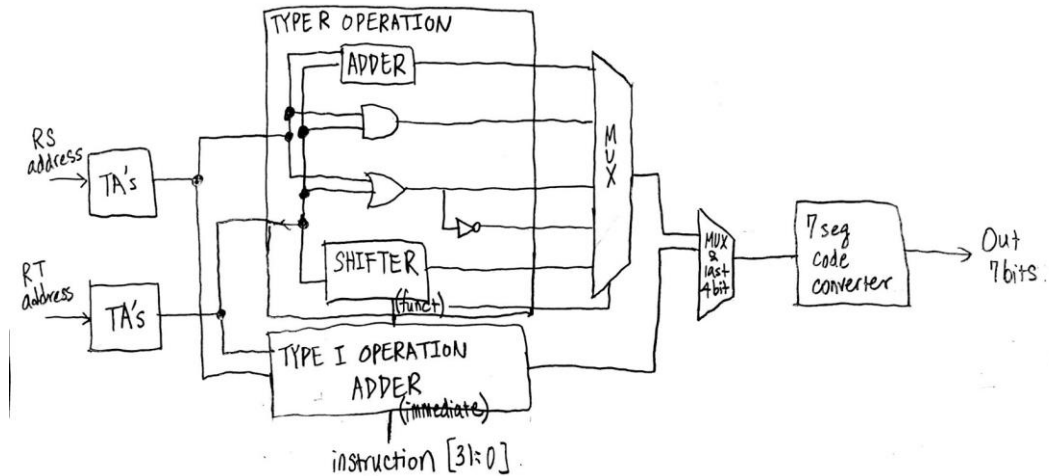 TYPE R OPERATION
ADDER
RS
address
TA's
MUX
SHIFTER
(funct)
RT
address
TA's
MUX
&
last
4bit
7 seg
code
converter
Out
7bits.
TYPE I OPERATION
ADDER
(immediate)
instruction [31:0]